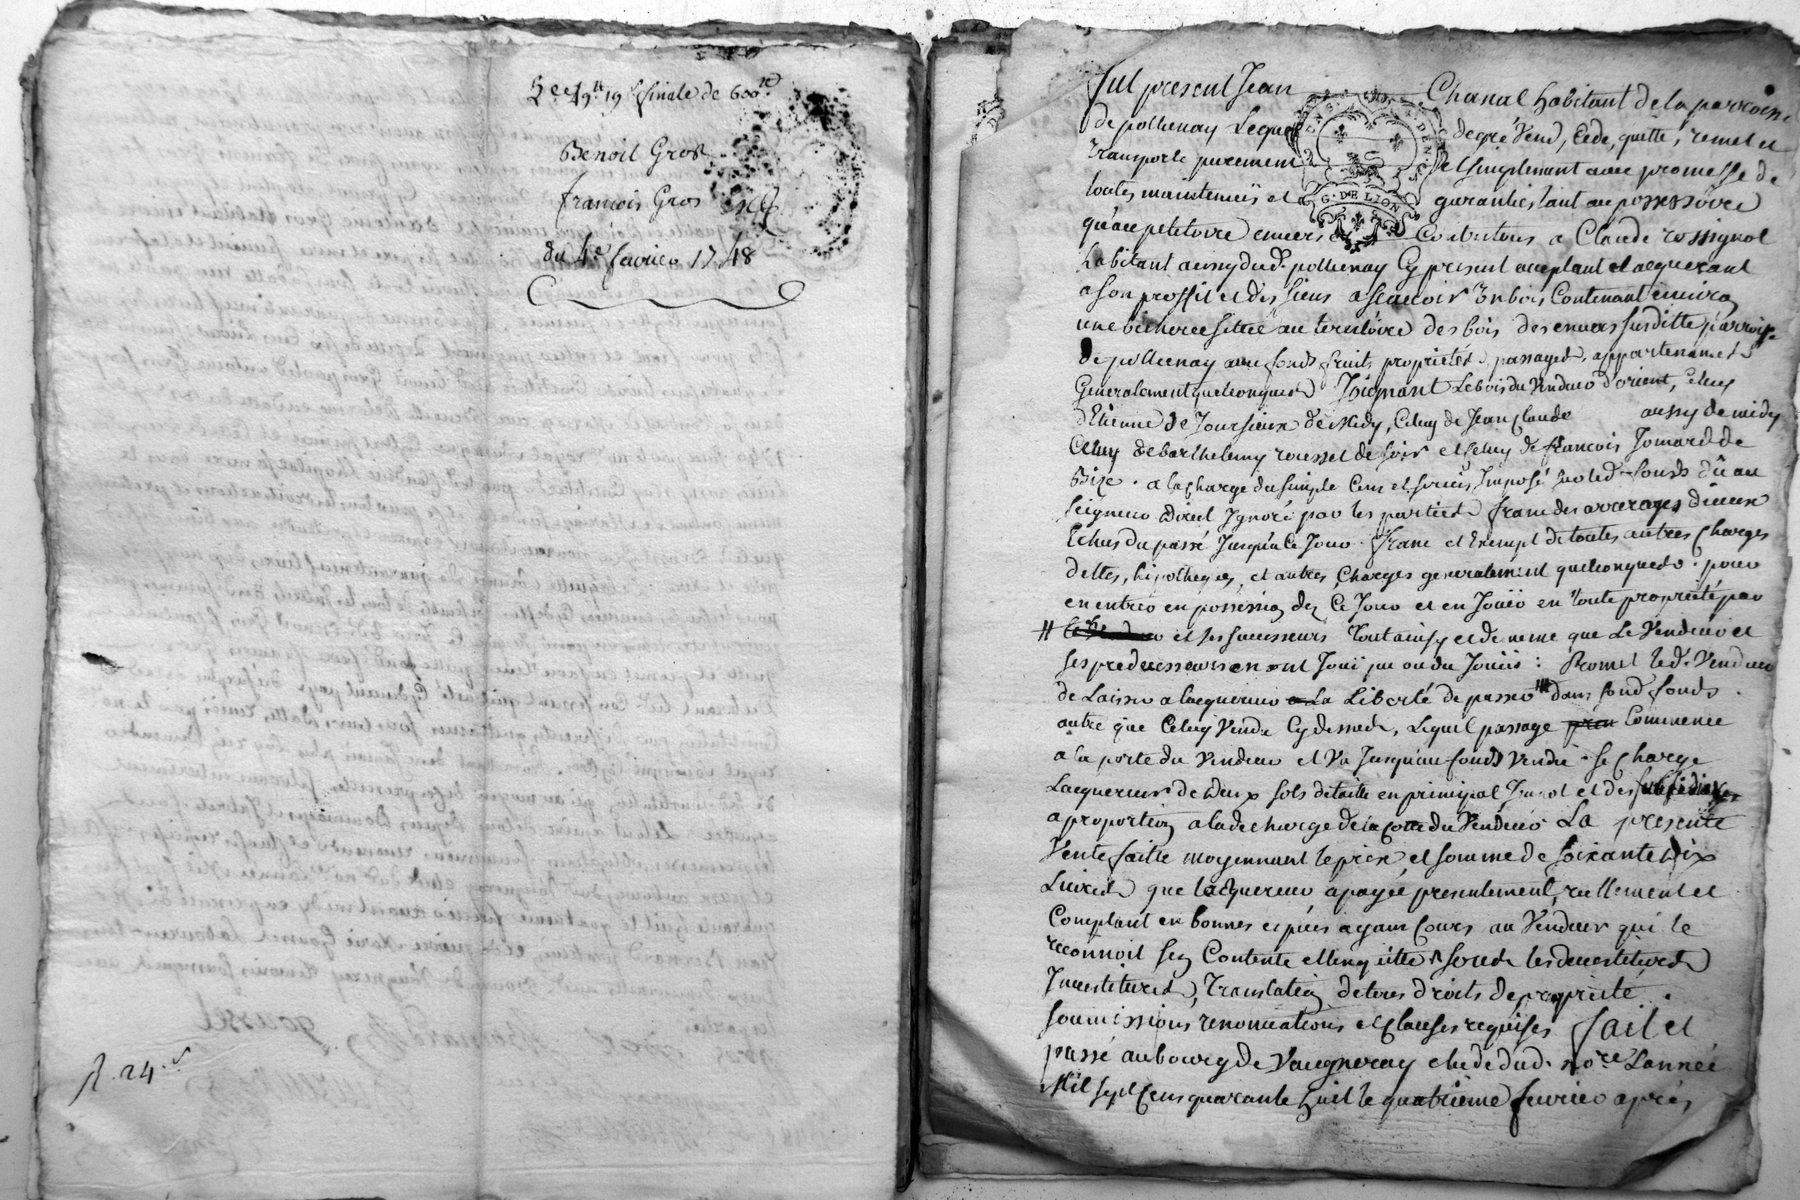 19 lt 19 s finale de 600 lt
Benoit Gros
francois Gros
du 4e fevrier 1748
R. 24 s
fut present Jean Chanal habitant de la parroisse
de pollienay Lequel de gré Vend, Cede, quitte, remet et
transporte purement et simplement avec promesse de
toutes maintenües et garanties tant au possessoire
qu'au petitoire envers et Contre tous a Claude rossignol
habitant aussy dud. pollienay Cy present acceptant et acquerant
a son proffit et des siens a scavoir Un bois Contenant environ
une bicherée située au territoire des bois des envers susditte parroisse
de pollienay avec fonds fruits proprietés, passages, appartenances
Generalement quelconques Joignant Le bois du Vendeur d'orient, Celuy
d'Etienne de Joursieux de Midy, Celuy de Jean Claude aussy de midy
Celuy de barthelemy roussel de soir et Celuy de francois Jomard de
Bize. a la Charge du simple Cens et servis Imposé sur led. fonds dû au
seigneur direct Ignoré par les parties franc des arrerages d'iceux
Echus du passé Jusqu'a Ce Jour. franc et Exempt de toutes autres Charges
dettes, hipotheques, et autres Charges generalement quelconques. pour
en entrer en possession dez Ce Jour et en Jouïr en toute proprieté par
et ses successeurs tout ainsy et de meme que Le Vendeur et
ses predecesseurs en ont Jouï pu ou du Jouïr: Promet led. Vendeur
de Laisser a lacquereur La Liberté de passer dans son d. fonds
autre que Celuy Vendu Cy dessus, Lequel passage Commence
a la porte du Vendeur et Va Jusqu'au fonds Vendu. se Charge
Lacquereur de deux sols de taille en principal et des subsidiaires
a proportion a la decharge de la Cotte du Vendeur La presente
Vente faitte moyennant le prix et somme de soixante dix
Livres que lacquereur a payée presentement, reellement et
Comptant en bonnes especes ayans Cours au Vendeur qui le
reconnoit s'en Contente et l'en quitte sous les devestitures
Investitures, Translation de tous droits de proprieté
soumissions renonciations et Clauses requises fait et
passé au bourg de Vaugneray etude dud. no.re Lannée
Mil sept Cens quarante huit le quatrieme fevrier après